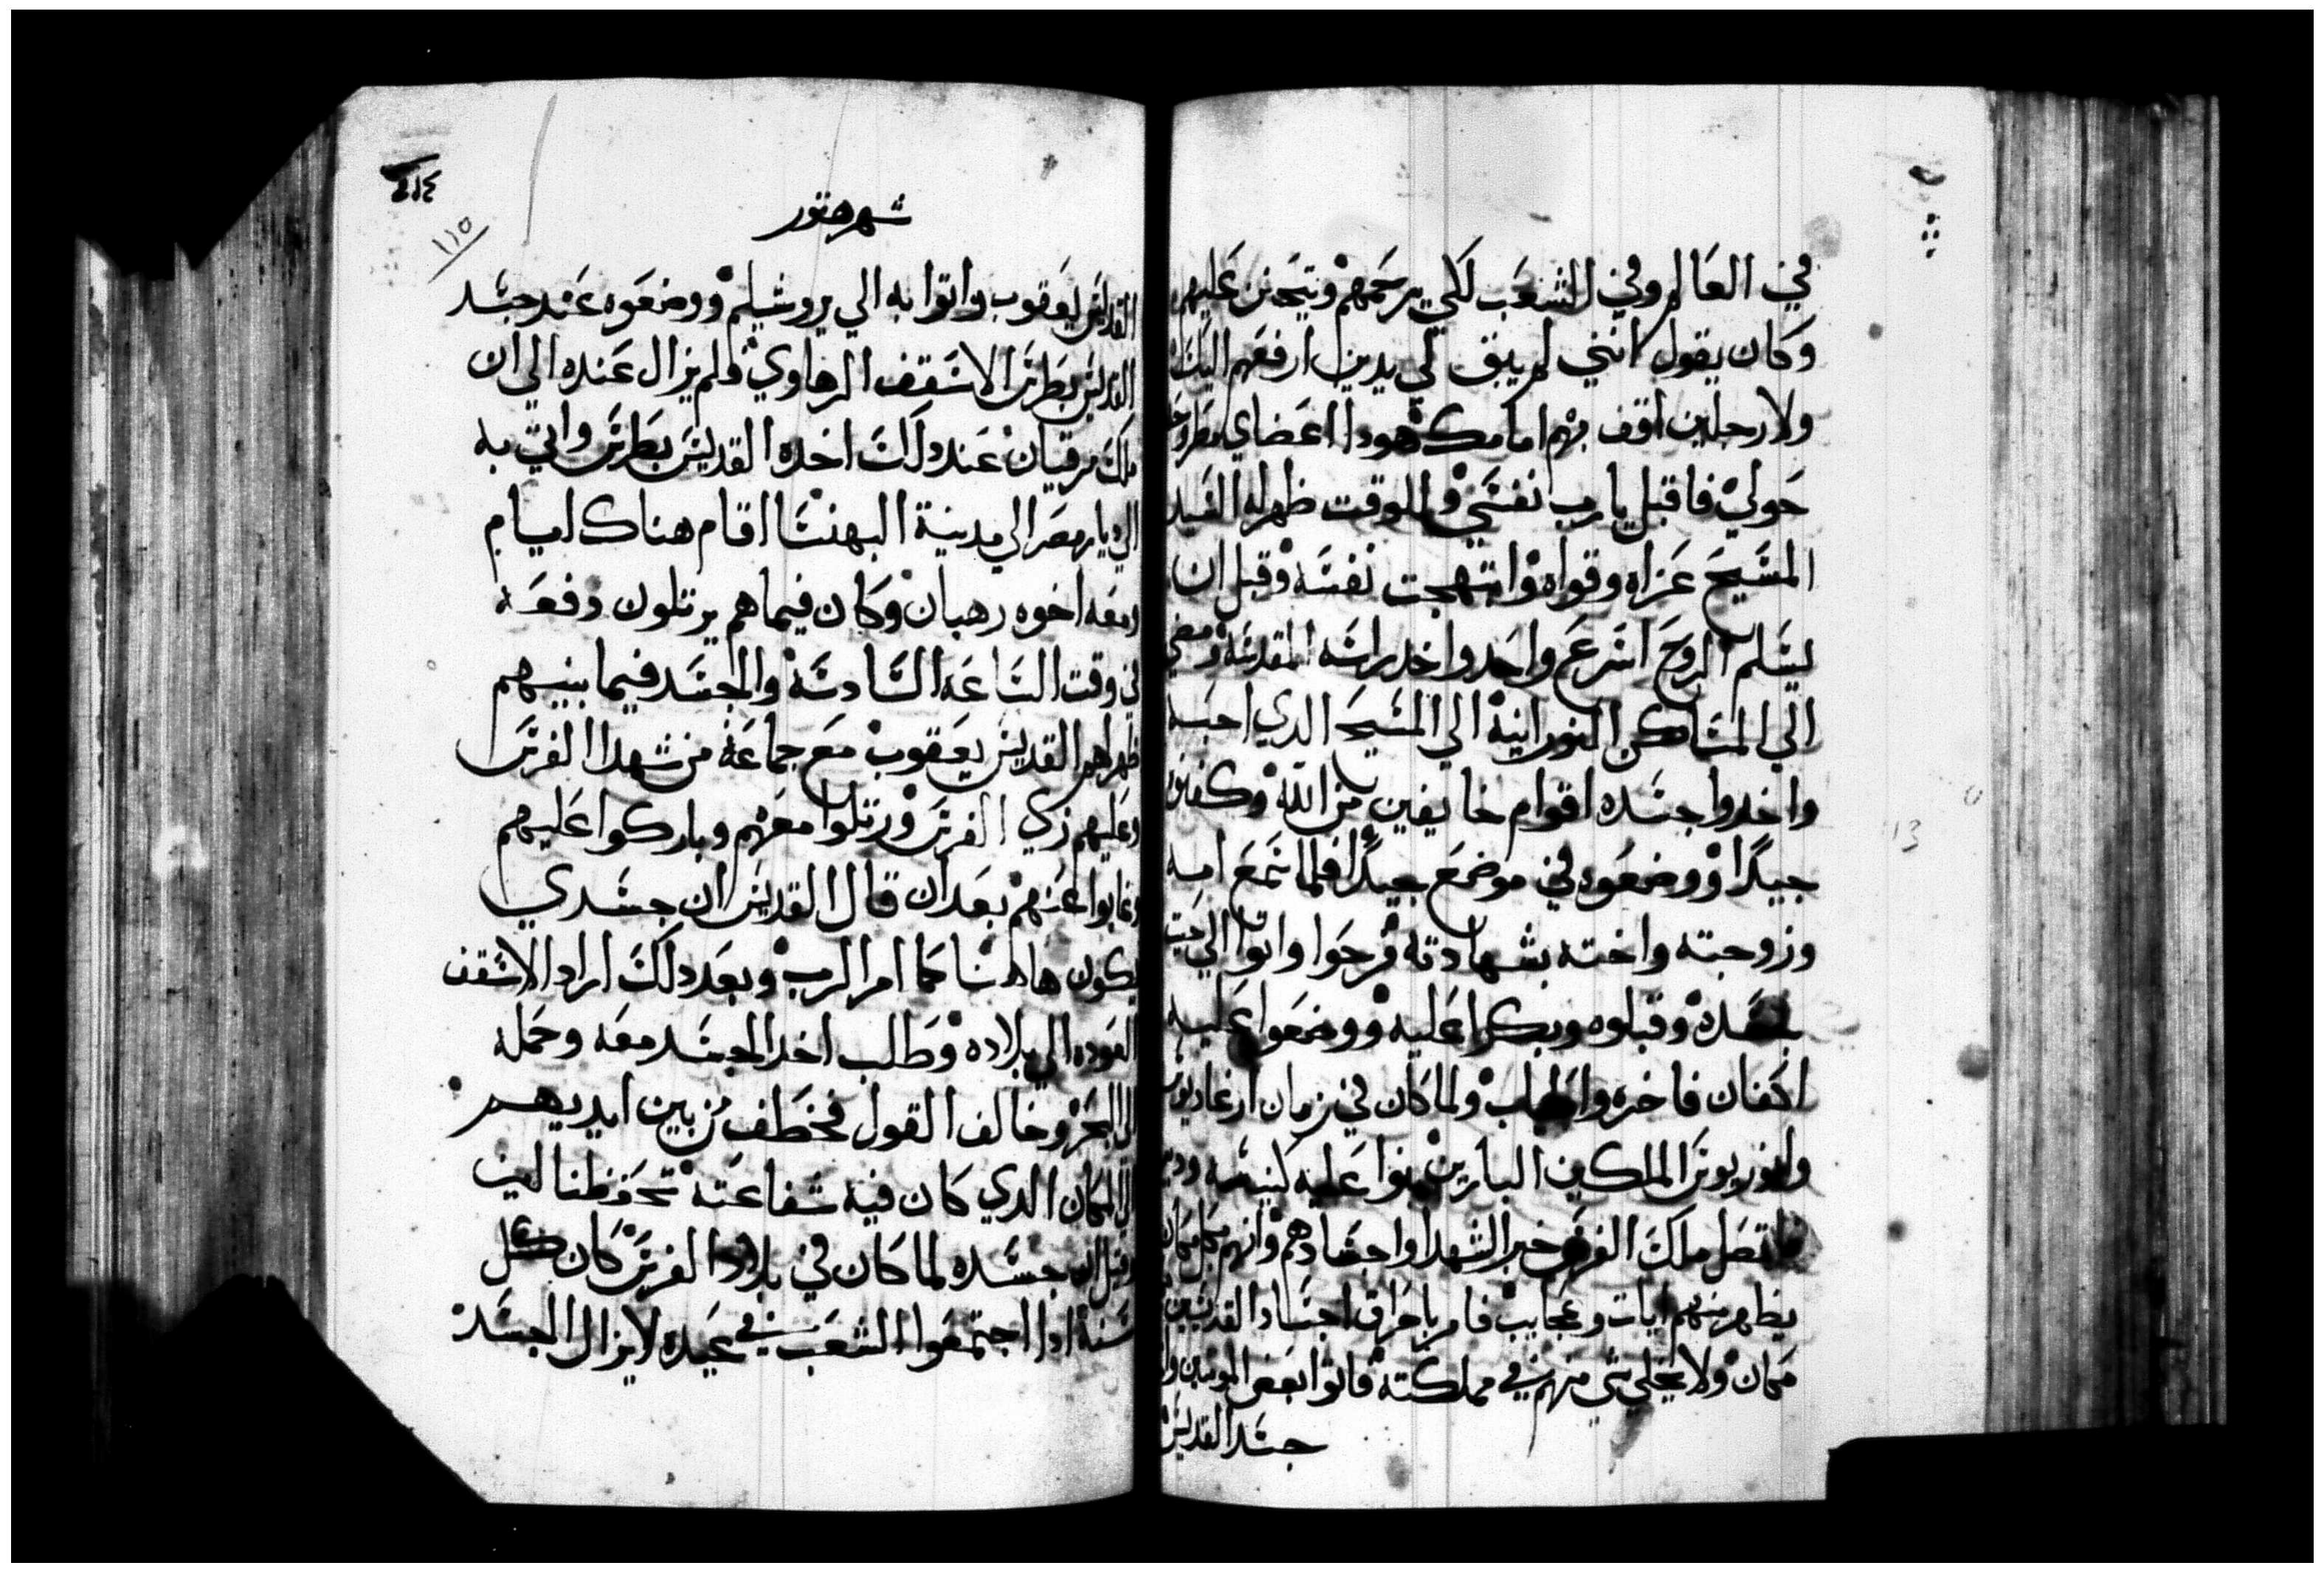 في العالم وفي الشعب لكي يرحمهم ويتحنن عليهم
وكان يقول انني لم يبق لي يدين ارفعهم اليك
ولا رجلين اقف بهم امامك هودا اعضاي مطروحه
حولي فاقبل يا رب نفسي وللوقت ظهر له السيد
المسيح عزاه وقواه وابتهجت نفسه وقبل ان
يسلم الروح اسرع واحد واخد راسه المقدسة ومضي
الي المساكن النورانية الي المسيح الدي احبه
واخدوا جسده اقوام خايفين من الله وكفنوه
جيدا ووضعوه في موضع جيدا فلما سمع امه
وزوجته واخته بشهادته فرحوا واتوا الي حيت
جسده وقبلوه وبكوا عليه ووضعوا عليه
اكفان فاخره واطياب ولما كان في زمان ارغاديوس
وانوريوس الملكين البارين بنوا عليه كنيسه ودير
فاتصل ملك الفرس خبر الشهدا واجسادهم وانهم بكل مكان
يظهر منهم ايات وعجايب فامر باحراق اجساد القديسين بكل
مكان ولا يخلي شي منهم في مملكته فاتوا بعض المومنين واخدوا
جسد القديس
٤١٤
١١٥
شهر هتور
القديس يعقوب واتوا به الي يروشليم ووضعوه عند جسد
القديس بطرس الاسقف الرهاوي فلم يزال عنده الي ان
ملك مرقيان عند دلك اخده القديس بطرس واتي به
الي ديار مصر الي مدينة البهنسا اقام هناك ايام
ومعه اخوه رهبان وكان فيما هم يرتلون دفعه
في وقت الساعه السادسة والجسد فيما بينهم
ظهر لهم القديس يعقوب مع جماعة من شهدا الفرس
وعليهم زي الفرس ورتلوا معهم وباركوا عليهم
وغابوا عنهم بعد ان قال القديس ان جسدي
يكون هاهنا كما امر الرب وبعد دلك اراد الاسقف
العوده الي بلاده وطلب اخد الجسد معه وحمله
الي البحر وخالف القول فخطف من بين ايديهم
الي المكان الدي كان فيه شفاعته تحفظنا امين
وقيل ان جسده لما كان في بلاد الفرس كان كل
سنة ادا اجتمعوا الشعب في عيده لا يزال الجسد